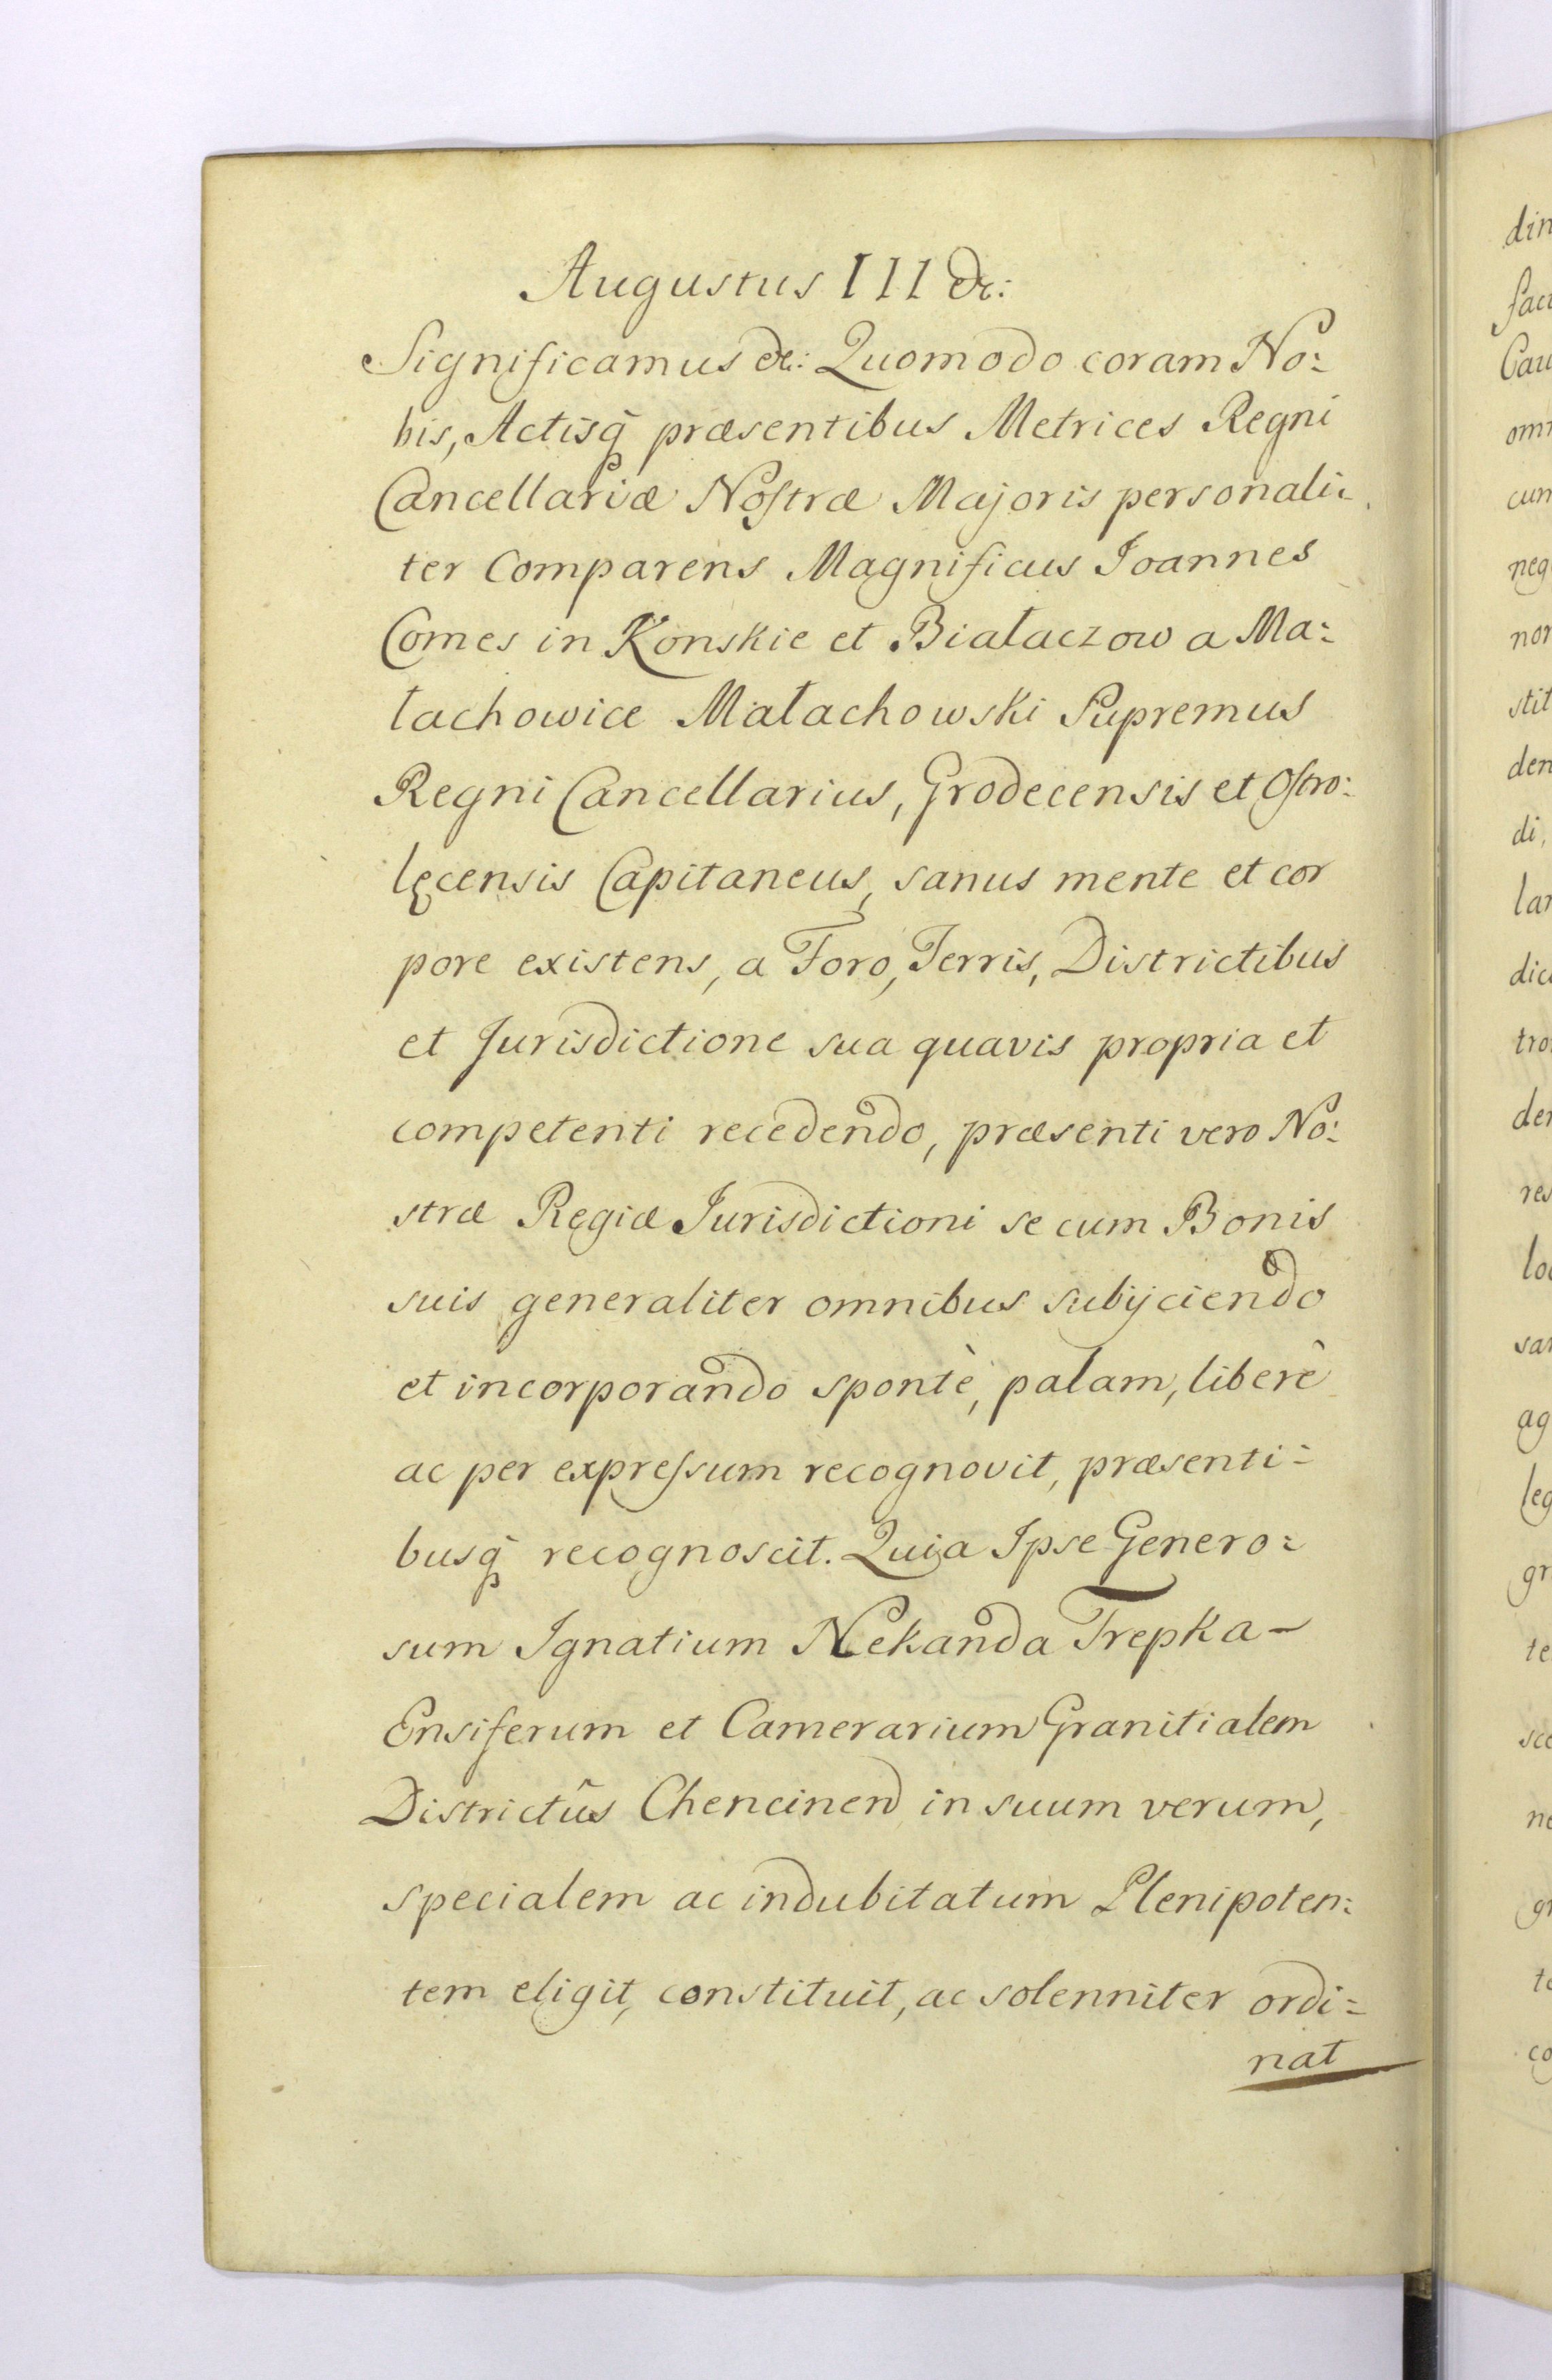 Augustus III &c:
Significamus &c: Quomodo coram No:
bis, Actisq́ præsentibus Metrices Regni
Cancellariæ Nostræ Majoris personali:
ter Comparens Magnificus Joannes
Comes in Konskie et Białaczow a Ma:
łachowice Małachowski Supremus
Regni Cancellarius, Grodecensis et Ostro:
lęcensis Capitaneus, sanus mente et cor
pore existens, a Foro, Terris, Districtibus
et Jurisdictione sua quavis propria et
competenti recedendo, præsenti vero No:
stræ Regiæ Jurisdictioni se cum Bonis
suis generaliter omnibus subijciendo
et incorporando spontè, palam, liberè
ac per expressum recognovit, præsenti:
busq́ recognoscit. Quia Ipse Genero:
sum Ignatium Nekanda Trepka –
Ensiferum et Camerarium Granitialem
Districtûs Chencinen in suum verum,
specialem ac indubitatum Plenipoten:
tem eligit, constituit, ac solenniter ordi:
nat
din
fact
Cau
omn
cun
neq
nor
stit
den
di,
lar
dic
tro
der
res
loc
sar
ag
leg
gr
te
sce
ne
gr
te
co